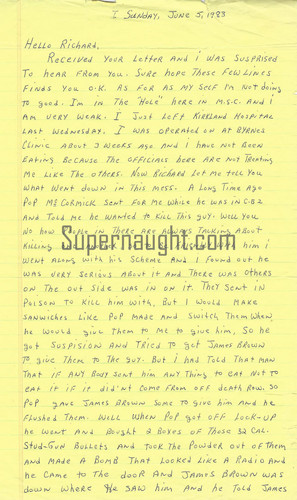 I SUNDAY, JUNE 5, 1983
HELLO RICHARD,
RECEIVED YOUR LETTER AND I WAS SUSPRISED
TO HEAR FROM YOU. SURE HOPE THESE FEW LINES
FINDS YOU O.K. AS FOR AS MY SELF I'M NOT DOING
TO GOOD. I'M IN THE "HOLE" HERE IN M.S.C. AND I
AM VERY WEAR. I JUST LEFT KIRKLAND HOSPITAL
LAST WEDNESDAY. I WAS OPERATED ON AT BYRNES
CLINIC ABOUT 3 WEEKS AGO AND I HAVE NOT BEEN
EATING BECAUSE THE OFFICIALS HERE ARE NOT TREATING
ME LIKE THE OTHERS. NOW RICHARD LET ME TELL YOU
WHAT WENT DOWN IN THIS MESS. A LONG TIME AGO
POP McCORMICK SENT FOR ME WHILE HE WAS IN C.B.2
AND TOLD ME HE WANTED TO KILL THIS GUY. WELL YOU
NO HOW PEOPLE IN THERE ARE ALWAYS TALKING ABOUT
KILLING HIM I
Supernaught.com
WENT ALONG WITH HIS SCHEME. AND I FOUND OUT HE
WAS VERY SERIOUS ABOUT IT AND THERE WAS OTHERS
ON THE OUT SIDE WAS IN ON IT. THEY SENT IN
POISON TO KILL HIM WITH, BUT I WOULD MAKE
SANWICHES LIKE POP MADE AND SWITCH THEM WHEN
HE WOULD GIVE THEM TO ME TO GIVE HIM, SO HE
GOT SUSPISION AND TRIED TO GOT JAMES BROWN
TO GIVE THEM TO THE GUY. BUT I HAD TOLD THAT MAN
THAT IF ANY BODY SENT HIM ANY THING TO EAT NOT TO
EAT IT IF IT DID'NT COME FROM OFF DEATH ROW. SO
POP GAVE JAMES BROWN SOME TO GIVE HIM AND HE
FLUSHED THEM. WILL WHEN POP GOT OFF LOCK-UP
HE WENT AND BOUGHT 2 BOXES OF THESE 32 CAL.
STUD-GUN BULLETS AND TOOK THE POWDER OUT OF THEM
AND MADE A BOMB THAT LOOKED LIKE A RADIO AND
HE CAME TO THE DOOR AND JAMES BROWN WAS
DOWN WHERE HE SAW HIM AND HE TOLD JAMES